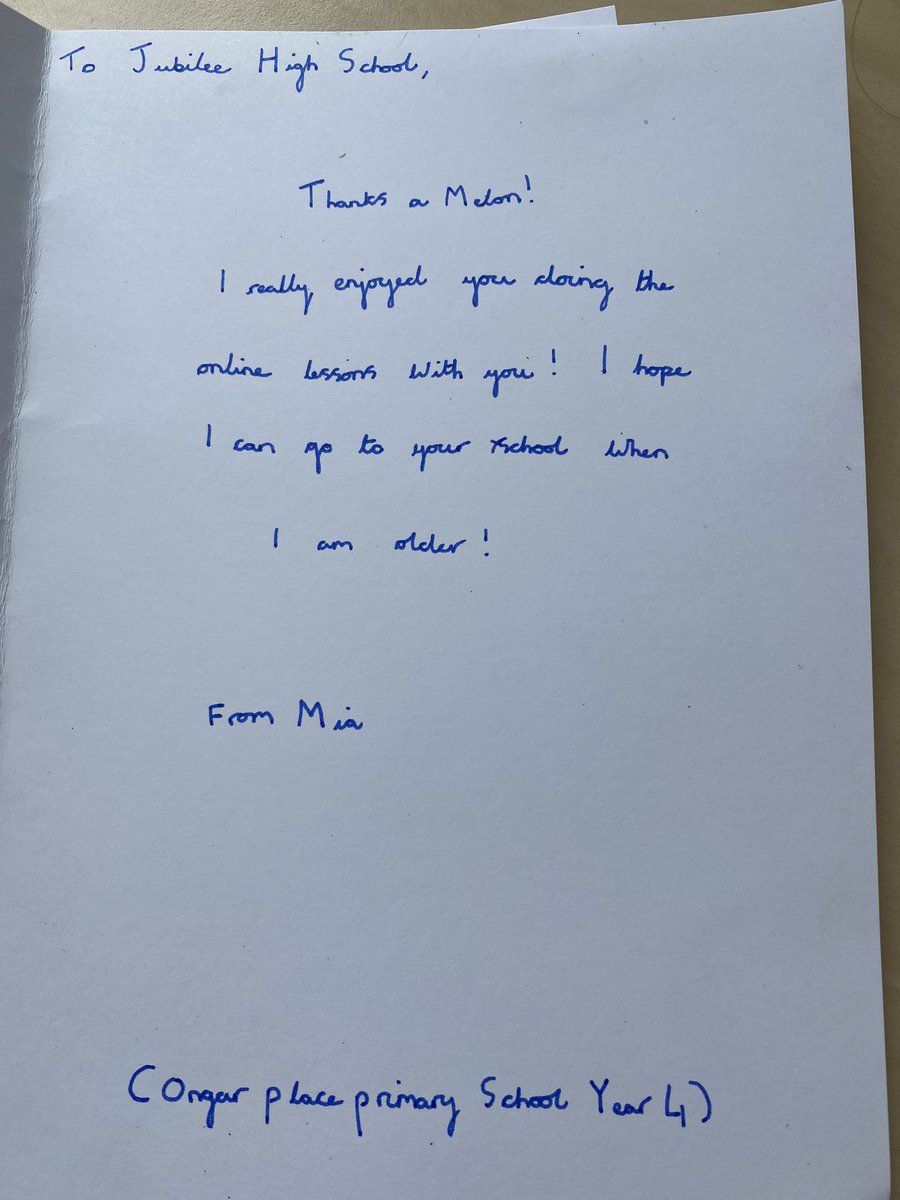 To Jubilee High School,
Thanks a Melon!
I really enjoyed you doing the
online lessons with you! I hope
I can go to your school when
I am older!
From Mia
(Ongar place primary School Year 4)